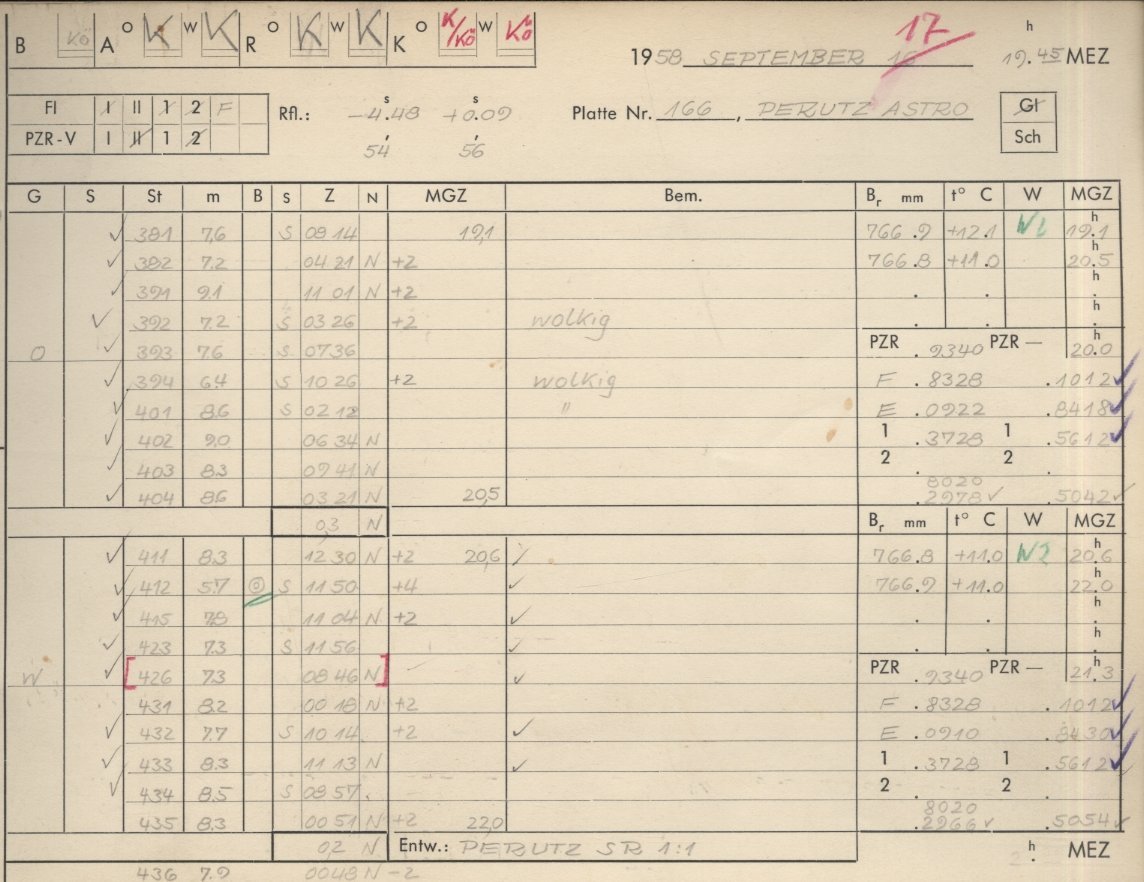 B Kö A O K W K R O K W K K O K/Kö W Kö
17
1958 SEPTEMBER 16 19.45 h MEZ
FI I II 1 2 F
PZR-V I II 1 2
Rfl.: -4.48 s +0.09 s
54 ' 56 '
Platte Nr. 166, PERUTZ ASTRO
Gl
Sch
G S St m B S Z N MGZ Bem. Br mm t° C W MGZ
✓ 381 7.6 S 08 14 19,1 766.9 +12.1 W1 19.1 h
✓ 382 7.2 04 21 N +2 766.8 +11.0 20.5 h
✓ 391 9.1 11 01 N +2 . . . h
✓ 392 7.2 S 03 26 +2 wolkig . . . h
O ✓ 393 7.6 S 07 36 PZR .9340 PZR — 20.0 h
✓ 394 6.4 S 10 26 +2 wolkig F .8328 .1012 ✓
✓ 401 8.6 S 02 12 " E .0922 .8418 ✓
✓ 402 9.0 06 34 N 1 .3728 1 .5612 ✓
✓ 403 8.3 09 41 N 2 . 2 .
✓ 404 8.6 03 21 N 20,5 8020 .2978 ✓ .5042 ✓
0,3 N Br mm t° C W MGZ
✓ 411 8.3 12 30 N +2 20,6 ✓ 766.8 +11.0 W2 20.6 h
✓ 412 5.7 ◎ S 11 50 +4 ✓ 766.9 +11.0 22.0 h
✓ 415 7.8 11 04 N +2 ✓ . . . h
✓ 423 7.3 S 11 56 ✓ . . . h
W ✓ [426 7.3 08 46 N] ✓ PZR .9340 PZR — 21.3 h
431 8.2 00 18 N +2 F .8328 .1012 ✓
✓ 432 7.7 S 10 14 +2 ✓ E .0910 .8430 ✓
✓ 433 8.3 11 13 N ✓ 1 .3728 1 .5612 ✓
✓ 434 8.5 S 08 57 2 . 2 .
435 8.3 00 51 N +2 22,0 8020 .2966 ✓ .5054 ✓
0,2 N Entw.: PERUTZ SR 1:1 h MEZ
436 7.9 00 48 N -2